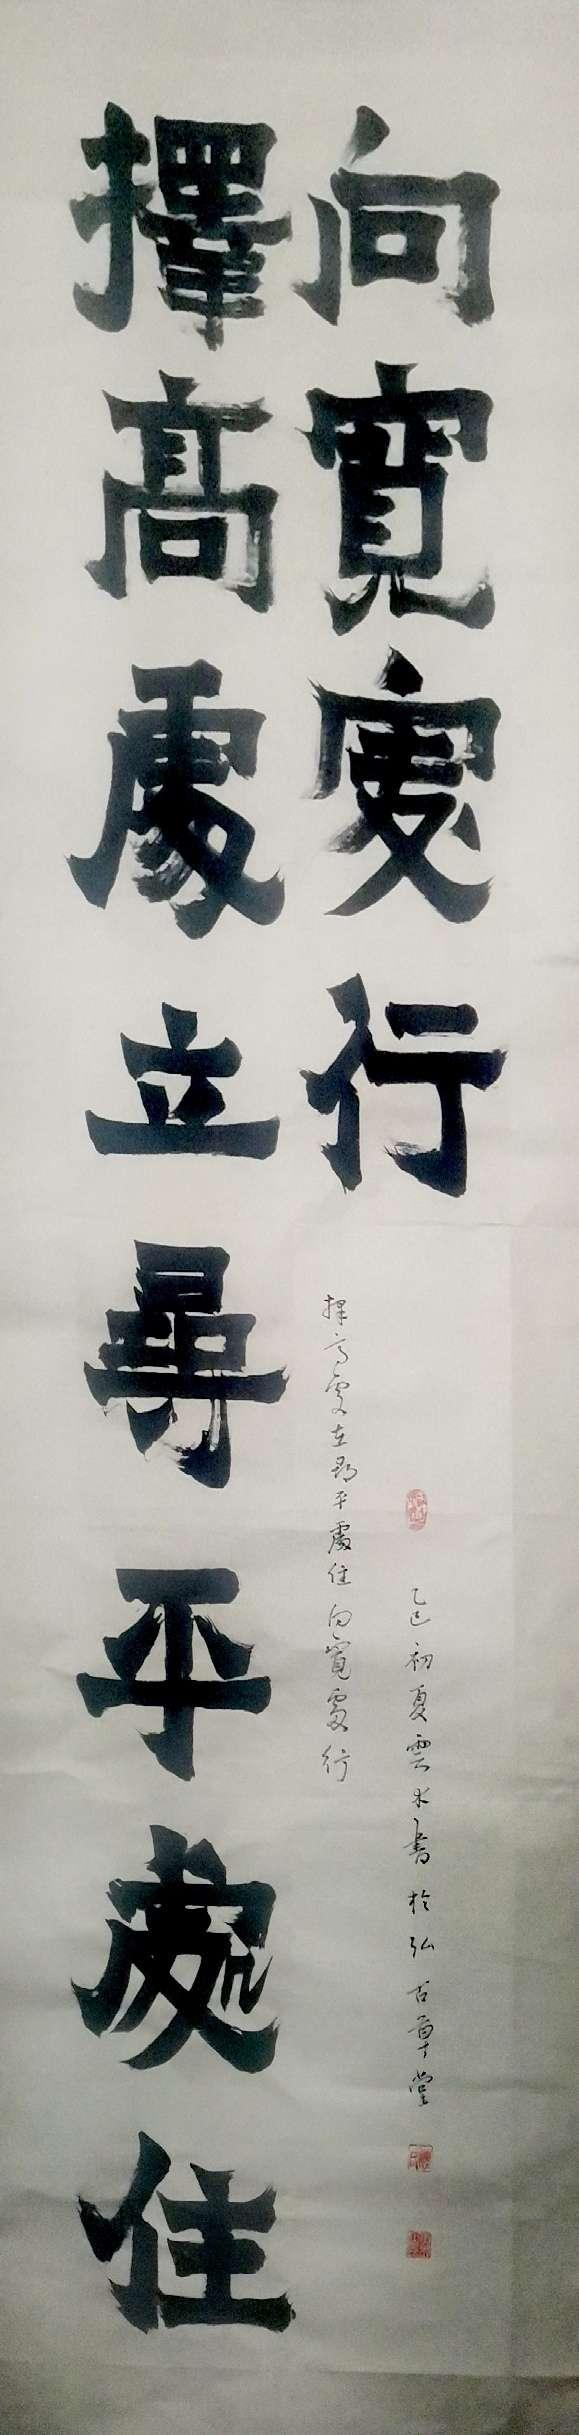 擇高處立尋平處住
向寬處行
擇高處立尋平處住向寬處行
乙巳初夏雲水書於弘古草堂